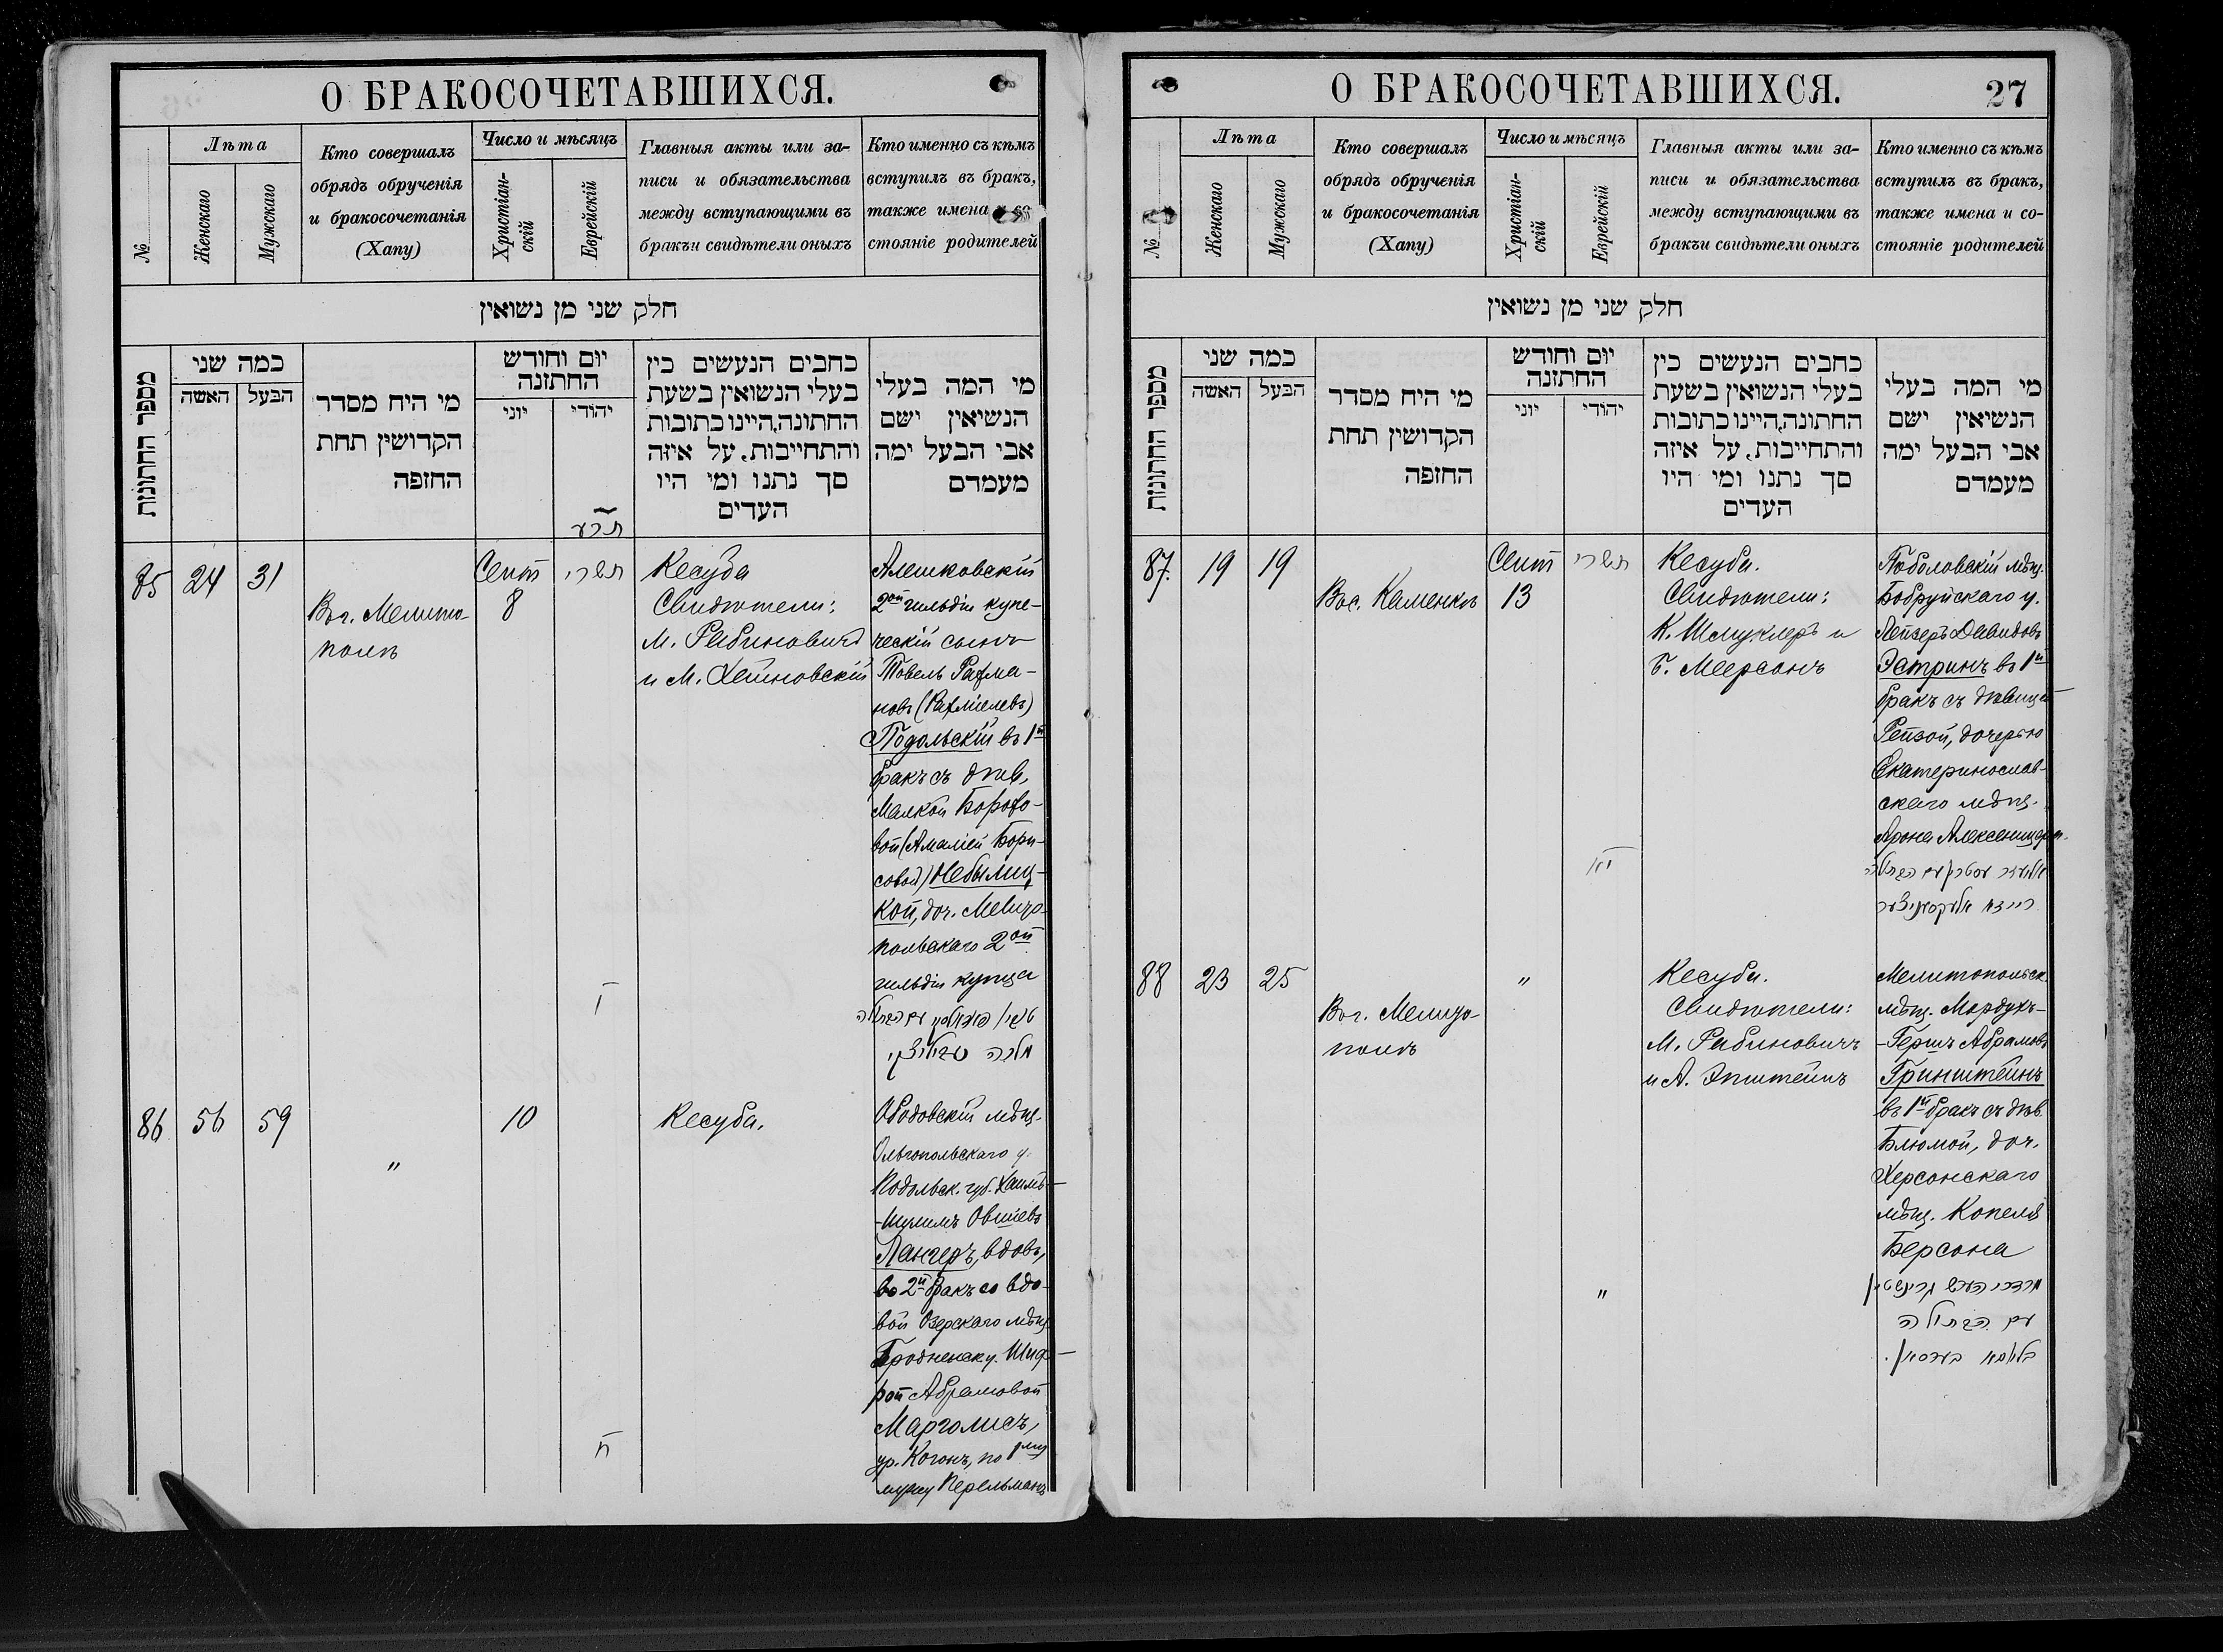 О БРАКОСОЧЕТАВШИХСЯ.
№
Лѣта
Женскаго
Мужскаго
Кто совершалъ
обрядъ обрученія
и бракосочетанія
(Хапу)
Число и мѣсяцъ
Христіан-
скій
Еврейскій
Главныя акты или за-
писи и обязательства
между вступающими въ
бракъ и свидѣтели оныхъ
Кто именно съ кѣмъ
вступилъ въ бракъ,
также имена и со-
стояніе родителей
חלק שני מן נשואין
מספר החתונות
כמה שני
האשה
הבעל
מי היה מסדר
הקדושין תחת
החופה
יום וחודש
החתונה
יוני
יהודי
תרע
כתבים הנעשים בין
בעלי הנשואין בשעת
החתונה, היינו כתובות
והתחייבות, על איזה
סך נתנו ומי היו
העדים
מי המה בעלי
הנשיאין ישם
אבי הבעל ימה
מעמדם
85
24
31
Вг. Мелито-
полѣ
Сент
8
תשרי
ה
Кесуба
Свидѣтели:
М. Рабиновичъ
и М. Хейновскій
Алешковскій
2ой гильдіи купе-
ческій сынъ
Товель Рахма-
новъ (Рахміелевъ)
Подольскій въ 1й
бракъ съ дѣв.
Малкой Борохо-
вой (Амаліей Бори-
совой) Небылиц-
кой, доч. Мелито-
польскаго 2ой
гильдіи купца
טובי' פאדאלסקי עם הבתולה
מלכה נעביליצקי
86
56
59
"
10
ח
Кесуба.
Ободовскій мѣщ.
Ольгопольскаго у.
Подольск. губ. Хаимъ-
-Шулимъ Овшіевъ
Лангеръ, вдовъ,
во 2й бракъ со вдо-
вой Озерскаго мѣщ.
Гродненск у. Шиф-
рой Абрамовой
Марголисъ,
ур. Когонъ, по 1му
мужу Перельманъ
О БРАКОСОЧЕТАВШИХСЯ.
27
№
Лѣта
Женскаго
Мужскаго
Кто совершалъ
обрядъ обрученія
и бракосочетанія
(Хапу)
Число и мѣсяцъ
Христіан-
скій
Еврейскій
Главныя акты или за-
писи и обязательства
между вступающими въ
бракъ и свидѣтели оныхъ
Кто именно съ кѣмъ
вступилъ въ бракъ,
также имена и со-
стояніе родителей
חלק שני מן נשואין
מספר החתונות
כמה שני
האשה
הבעל
מי היה מסדר
הקדושין תחת
החופה
יום וחודש
החתונה
יוני
יהודי
כתבים הנעשים בין
בעלי הנשואין בשעת
החתונה, היינו כתובות
והתחייבות, על איזה
סך נתנו ומי היו
העדים
מי המה בעלי
הנשיאין ישם
אבי הבעל ימה
מעמדם
87.
19
19
Вос. Каменкѣ
Сент
13
תשרי
Кесуба.
Свидѣтели:
К. Шмуклеръ и
Б. Меерсонъ
Поболовскій мѣщ.
Бобруйскаго у.
Лейзеръ Давидовъ
Эстринъ въ 1й
бракъ съ дѣвицей
Рейзой, дочерью
Екатеринослав-
скаго мѣщ.
Арона Алексеницера.
אליעזר עסטרין עם הבתולה
רייזא אלעקסעניצער
88
23
25
Вг. Мелито-
полѣ
"
"
Кесуба.
Свидѣтели:
М. Рабиновичъ
и А. Эпштейнъ
Мелитопольск.
мѣщ. Мордухъ-
-Гершъ Абрамовъ
Гринштейнъ
въ 1й бракъ съ дѣв.
Блюмой, доч.
Херсонскаго
мѣщ. Копеля
Берсона
מרדכי הערש גרינשטיין
עם הבתולה
בלומא בערסאן.